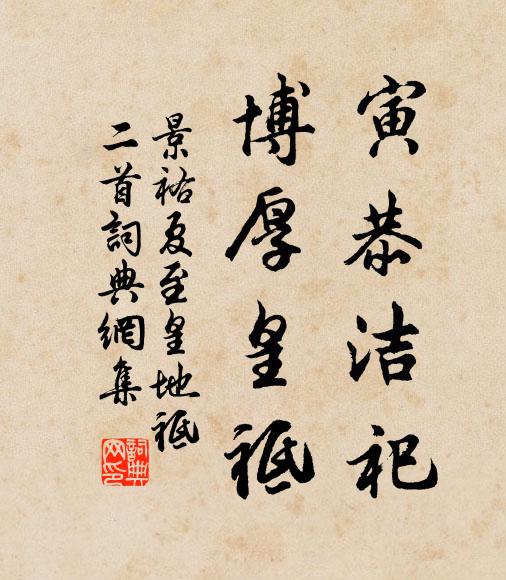 寅恭洁祀
博厚皇祗
景祐夏至皇地祗
二首詞典網集
詞典网印